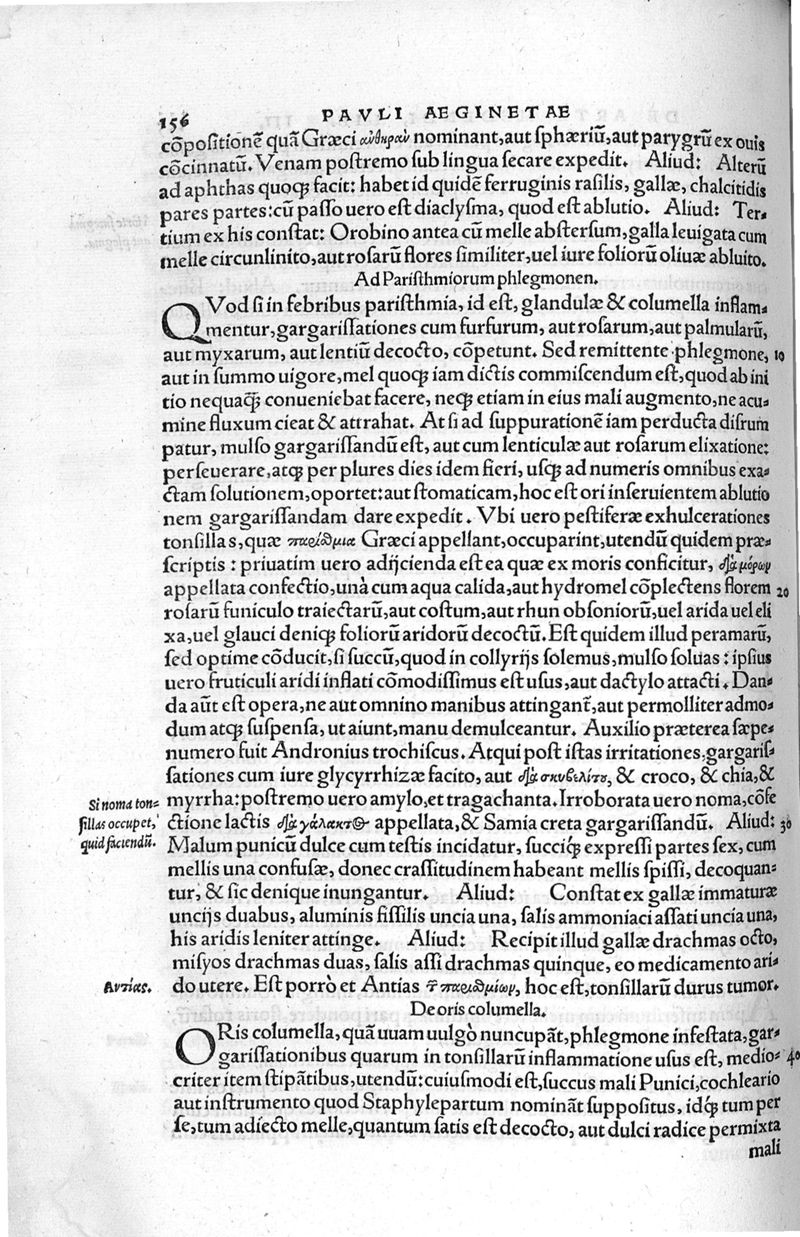 156 PAVLI AEGINETAE
cōpositionē quā Græci ανθηραν nominant, aut sphæriū, aut parygrū ex ouis
cōcinnatū. Venam postremo sub lingua secare expedit. Aliud: Alterū
ad aphthas quoqꝫ facit: habet id quidē ferruginis rasilis, gallæ, chalcitidis
pares partes: cū passo uero est diaclysma, quod est ablutio. Aliud: Ter-
tium ex his constat: Orobino antea cū melle abstersum, galla leuigata cum
melle circunlinito, aut rosarū flores similiter, uel iure foliorū oliuæ abluito.
Ad Paristhmiorum phlegmonen.
QVod si in febribus paristhmia, id est, glandulæ & columella inflam-
mentur, gargarissationes cum furfurum, aut rosarum, aut palmularū,
aut myxarum, aut lentiū decocto, cōpetunt. Sed remittente phlegmone, 10
aut in summo uigore, mel quoqꝫ iam dictis commiscendum est, quod ab ini
tio nequaqꝫ conueniebat facere, neqꝫ etiam in eius mali augmento, ne acu-
mine fluxum cieat & attrahat. At si ad suppurationē iam perducta disrum
patur, mulso gargarissandū est, aut cum lenticulæ aut rosarum elixatione:
perseuerare, atqꝫ per plures dies idem fieri, usqꝫ ad numeris omnibus exa-
ctam solutionem, oportet: aut stomaticam, hoc est ori inseruientem ablutio
nem gargarissandam dare expedit. Vbi uero pestiferæ exhulcerationes
tonsillas, quæ παρίσθμια Græci appellant, occuparint, utendū quidem præ-
scriptis: priuatim uero adijcienda est ea quæ ex moris conficitur, διὰ μόρων
appellata confectio, unà cum aqua calida, aut hydromel cōplectens florem 20
rosarū funiculo traiectarū, aut costum, aut rhun obsoniorū, uel arida uel eli
xa, uel glauci deniqꝫ foliorū aridorū decoctū. Est quidem illud peramarū,
sed optime cōducit, si succū, quod in collyrijs solemus, mulso soluas: ipsius
uero fruticuli aridi inflati cōmodissimus est usus, aut dactylo attacti. Dan-
da aūt est opera, ne aut omnino manibus attingant᷑, aut permolliter admo-
dum atqꝫ suspensa, ut aiunt, manu demulceantur. Auxilio præterea sæpe-
numero fuit Andronius trochiscus. Atqui post istas irritationes, gargaris-
sationes cum iure glycyrrhizæ facito, aut διὰ σκυβελίτου, & croco, & chia, &
Si noma ton= myrrha: postremo uero amylo, et tragachanta. Irroborata uero noma, cōfe
sillas occupet, ctione lactis διὰ γάλακτος appellata, & Samia creta gargarissandū. Aliud: 30
quid faciendū. Malum punicū dulce cum testis incidatur, succiqꝫ expressi partes sex, cum
mellis una confusæ, donec crassitudinem habeant mellis spissi, decoquan-
tur, & sic denique inungantur. Aliud: Constat ex gallæ immaturæ
uncijs duabus, aluminis fissilis uncia una, salis ammoniaci assati uncia una,
his aridis leniter attinge. Aliud: Recipit illud gallæ drachmas octo,
misyos drachmas duas, salis assi drachmas quinque, eo medicamento ari-
Αντίας. do utere. Est porrò et Antias τ παρισθμίων, hoc est, tonsillarū durus tumor.
De oris columella.
ORis columella, quā uuam uulgò nuncupāt, phlegmone infestata, gar-
garissationibus quarum in tonsillarū inflammatione usus est, medio- 40
criter item stipātibus, utendū: cuiusmodi est, succus mali Punici, cochleario
aut instrumento quod Staphylepartum nominat suppositus, idqꝫ tum per
se, tum adiecto melle, quantum satis est decocto, aut dulci radice permixta
mali